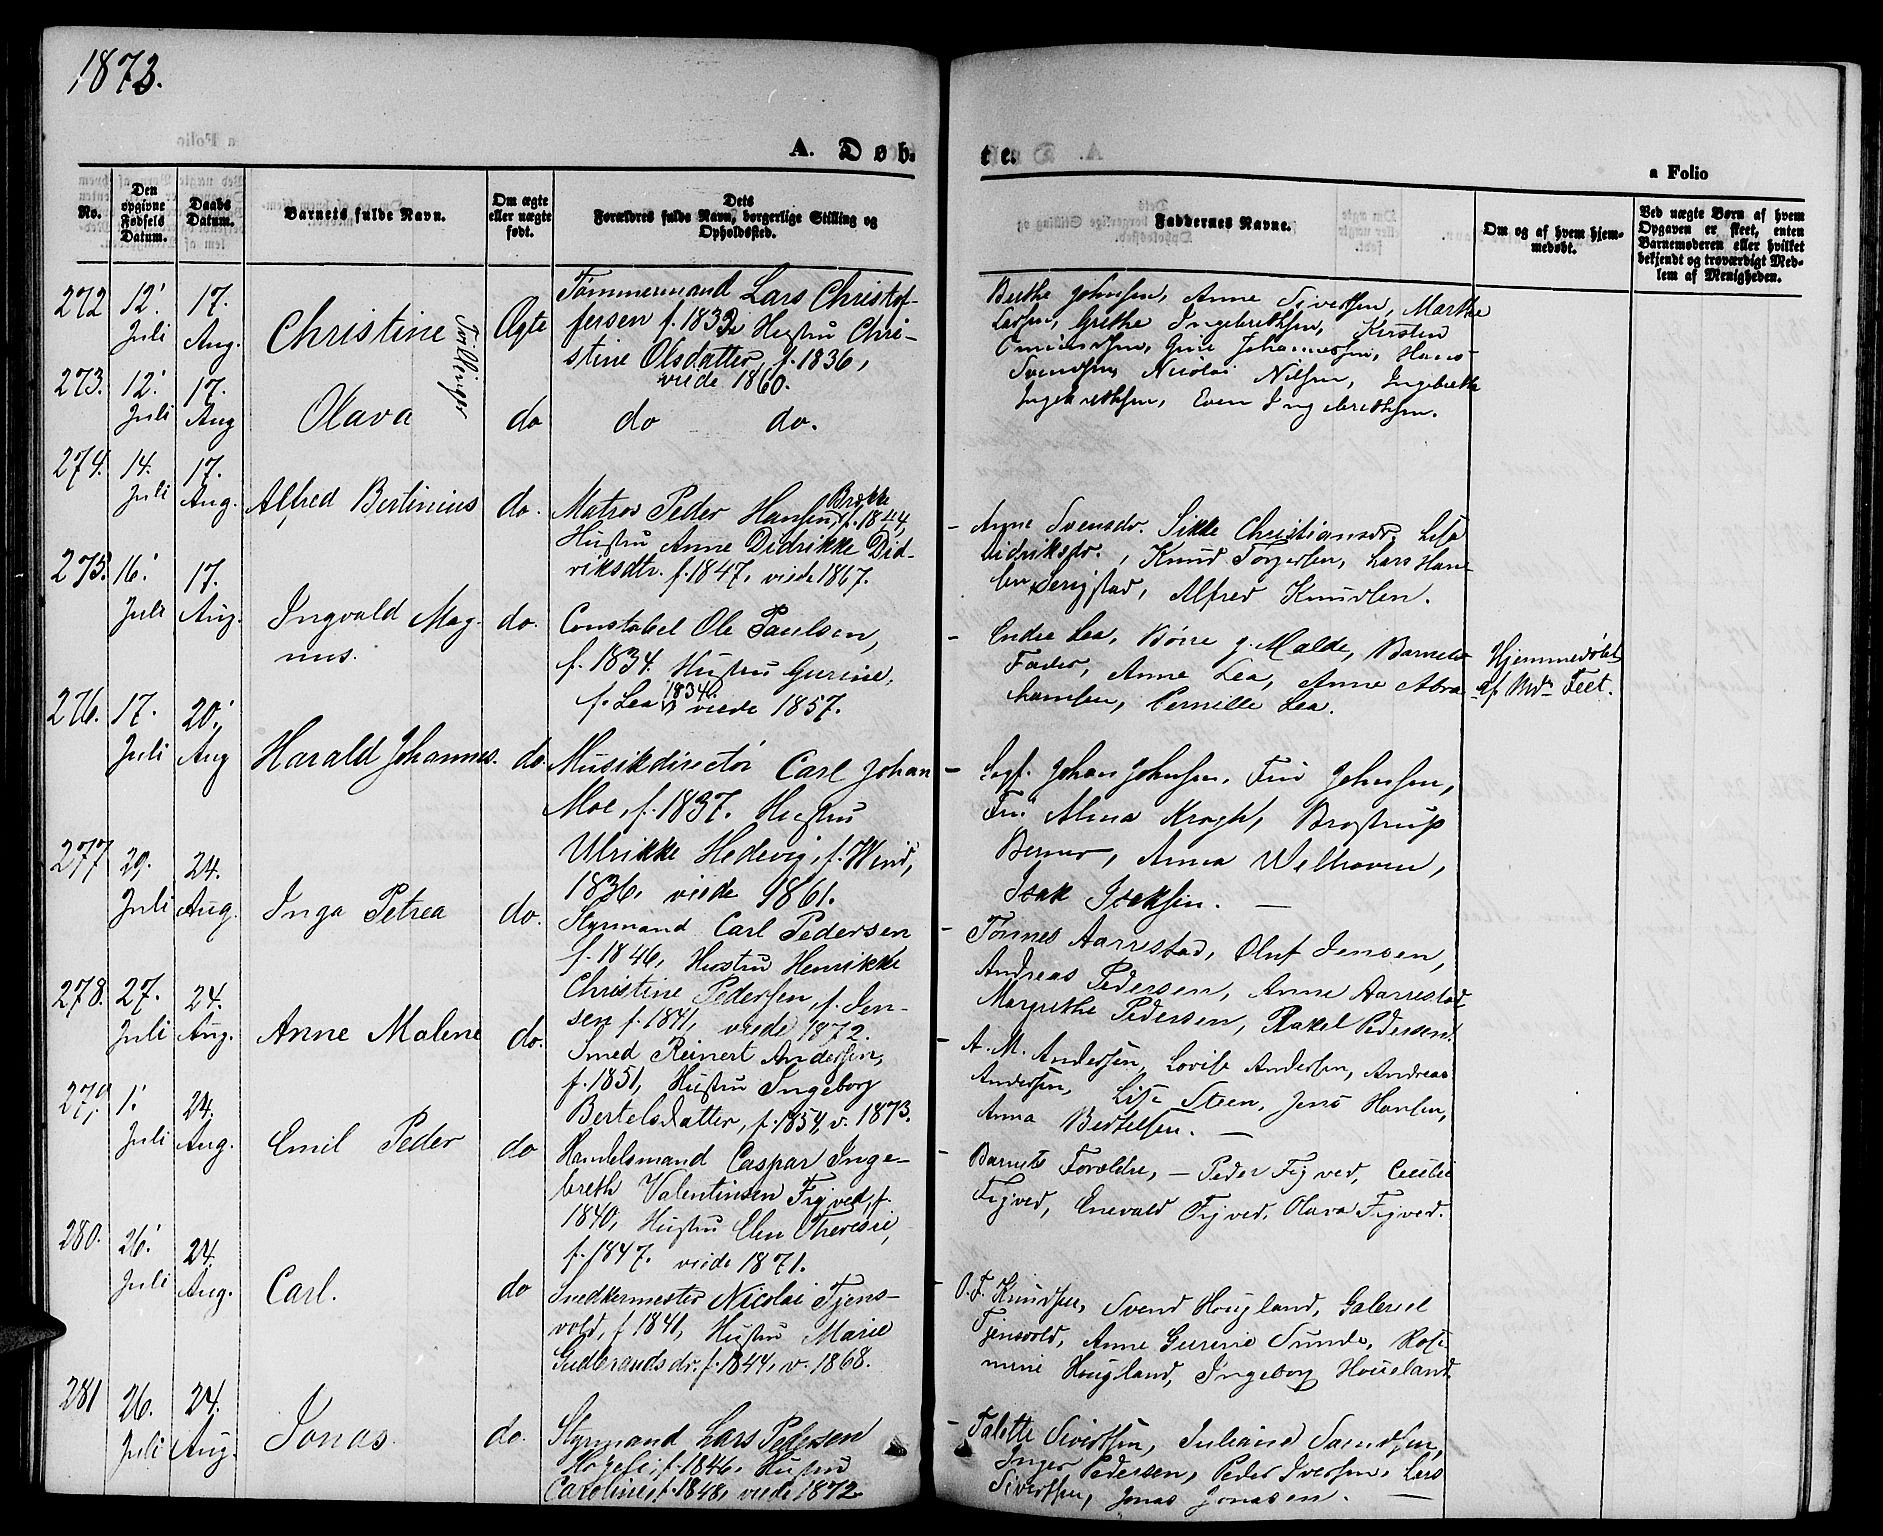 1873.
A. Døb-
te.
a Folio
No.
Den opgivne Fødsels Datum.
Daabs Datum.
Barnets fulde Navn.
Om ægte eller uægte født.
Dets Forældres fulde Navn, borgerlige Stilling og Opholdssted.
Faddernes Navne.
Om og af hvem hjemmedøbt.
Ved uægte Børn af hvem Opgaven er skeet, enten Barnemoderen eller hvilket bekjendt og troværdigt Medlem af Menigheden.
272 12. Juli 17. Aug. Christine Tvillinger Ægte
Tømmermand Lars Christof-
fersen f. 1833 Hustru Chri-
stine Olsdatter, f. 1836,
viede 1860.
Berthe Johnsen, Anne Sivertsen, Marthe
Larsen, Grethe Ingebrethsen, Kirsten
Gurine Johannessen, Hans
Svendsen, Nicolai Nilsen, Ingebreth
Ingebrethsen, Even Ingebrethsen.
273. 12. Juli 17. Aug Olava do do do.
274. 14. Juli 17. Aug. Alfred Bertinius do.
Matros Peder Hansen Brekke f. 1844,
Hustru Anne Didrikke Did-
riksdtr. f. 1847, viede 1867.
- Anne Svensdr. Sikke Christiansdr. Lise
Didriksdr., Knud Torgersen, Lars Han-
sen Serigstad, Alfred Knudsen.
275. 16. Juli 17. Aug. Ingvald Mag-
nus. do.
Constabel Ole Paulsen,
f. 1834. Hustru Gurine,
f. Lea 1834. viede 1857.
- Endre Lea, Børre g. Malde, Barnets
Fader, Anne Lea, Anne Abra-
hamsen, Pernille Lea.
Hjemmedøbt
af Mdm Feet.
276. 17. Juli 20. Aug Harald Johannes. do.
Musikdirectør Carl Johan
Moe, f. 1837. Hustru
Ulrikke Hedevig, f. Wind,
1836, viede 1861.
- Johan Johnsen, Fru Johnsen,
Fru Alma Krogh, Brostrup
Berner, Anna Welhaven,
Isak Isaksen. —
277 29. Juli 24. Aug. Inga Petrea do.
Styrmand Carl Pedersen
f. 1846, Hustru Henrikke
Christine Pedersen, f. Jen-
sen f. 1841, viede 1872.
- Tønnes Aarrestad, Oluf Jensen,
Andreas Pedersen, Anne Aarrestad
Margrethe Pedersen, Rakel Pedersen.
278. 27. Juli 24. Aug. Anne Malene do.
Smed Reinert Andersen,
f. 1851, Hustru Ingeborg
Bertelsdatter, f. 1854, v. 1873.
- A. M. Andersen, Lovise Andersen, Andreas
Andersen, Lise Steen, Jens Hansen,
Anna Bertelsen. —
279, 1. Juli 24. Aug. Emil Peder do
Handelsmand Caspar Inge-
breth Valentinsen Figved, f.
1840, Hustru Elen Theresie,
f. 1847. viede 1871.
- Barnets Forældre, - Peder Figved, Cecilie
Figved, Enevald Figved, Olava Figved.
280. 26. Juli 24. Aug. Carl. do
Snedkermester Nicolai Tjens-
vold, f. 1841, Hustru Marie
Gudbrandsdr. f. 1844, v. 1868.
- O. F. Knudsen, Svend Hougland, Gabriel
Tjensvold, Anne Gurine Sunde, Rosi-
mine Hougland, Ingeborg Houeland.
281 26. Juli 24. Aug. Jonas. do.
Styrmand Lars Pedersen
f. 1846, Hustru
Caroline, f. 1848, viede 1872
- Talette Sivertsen, Juliane Samdsen,
Inger Pedersen, Peder Iversen, Lars
Sivertsen, Jonas Jonasen. —